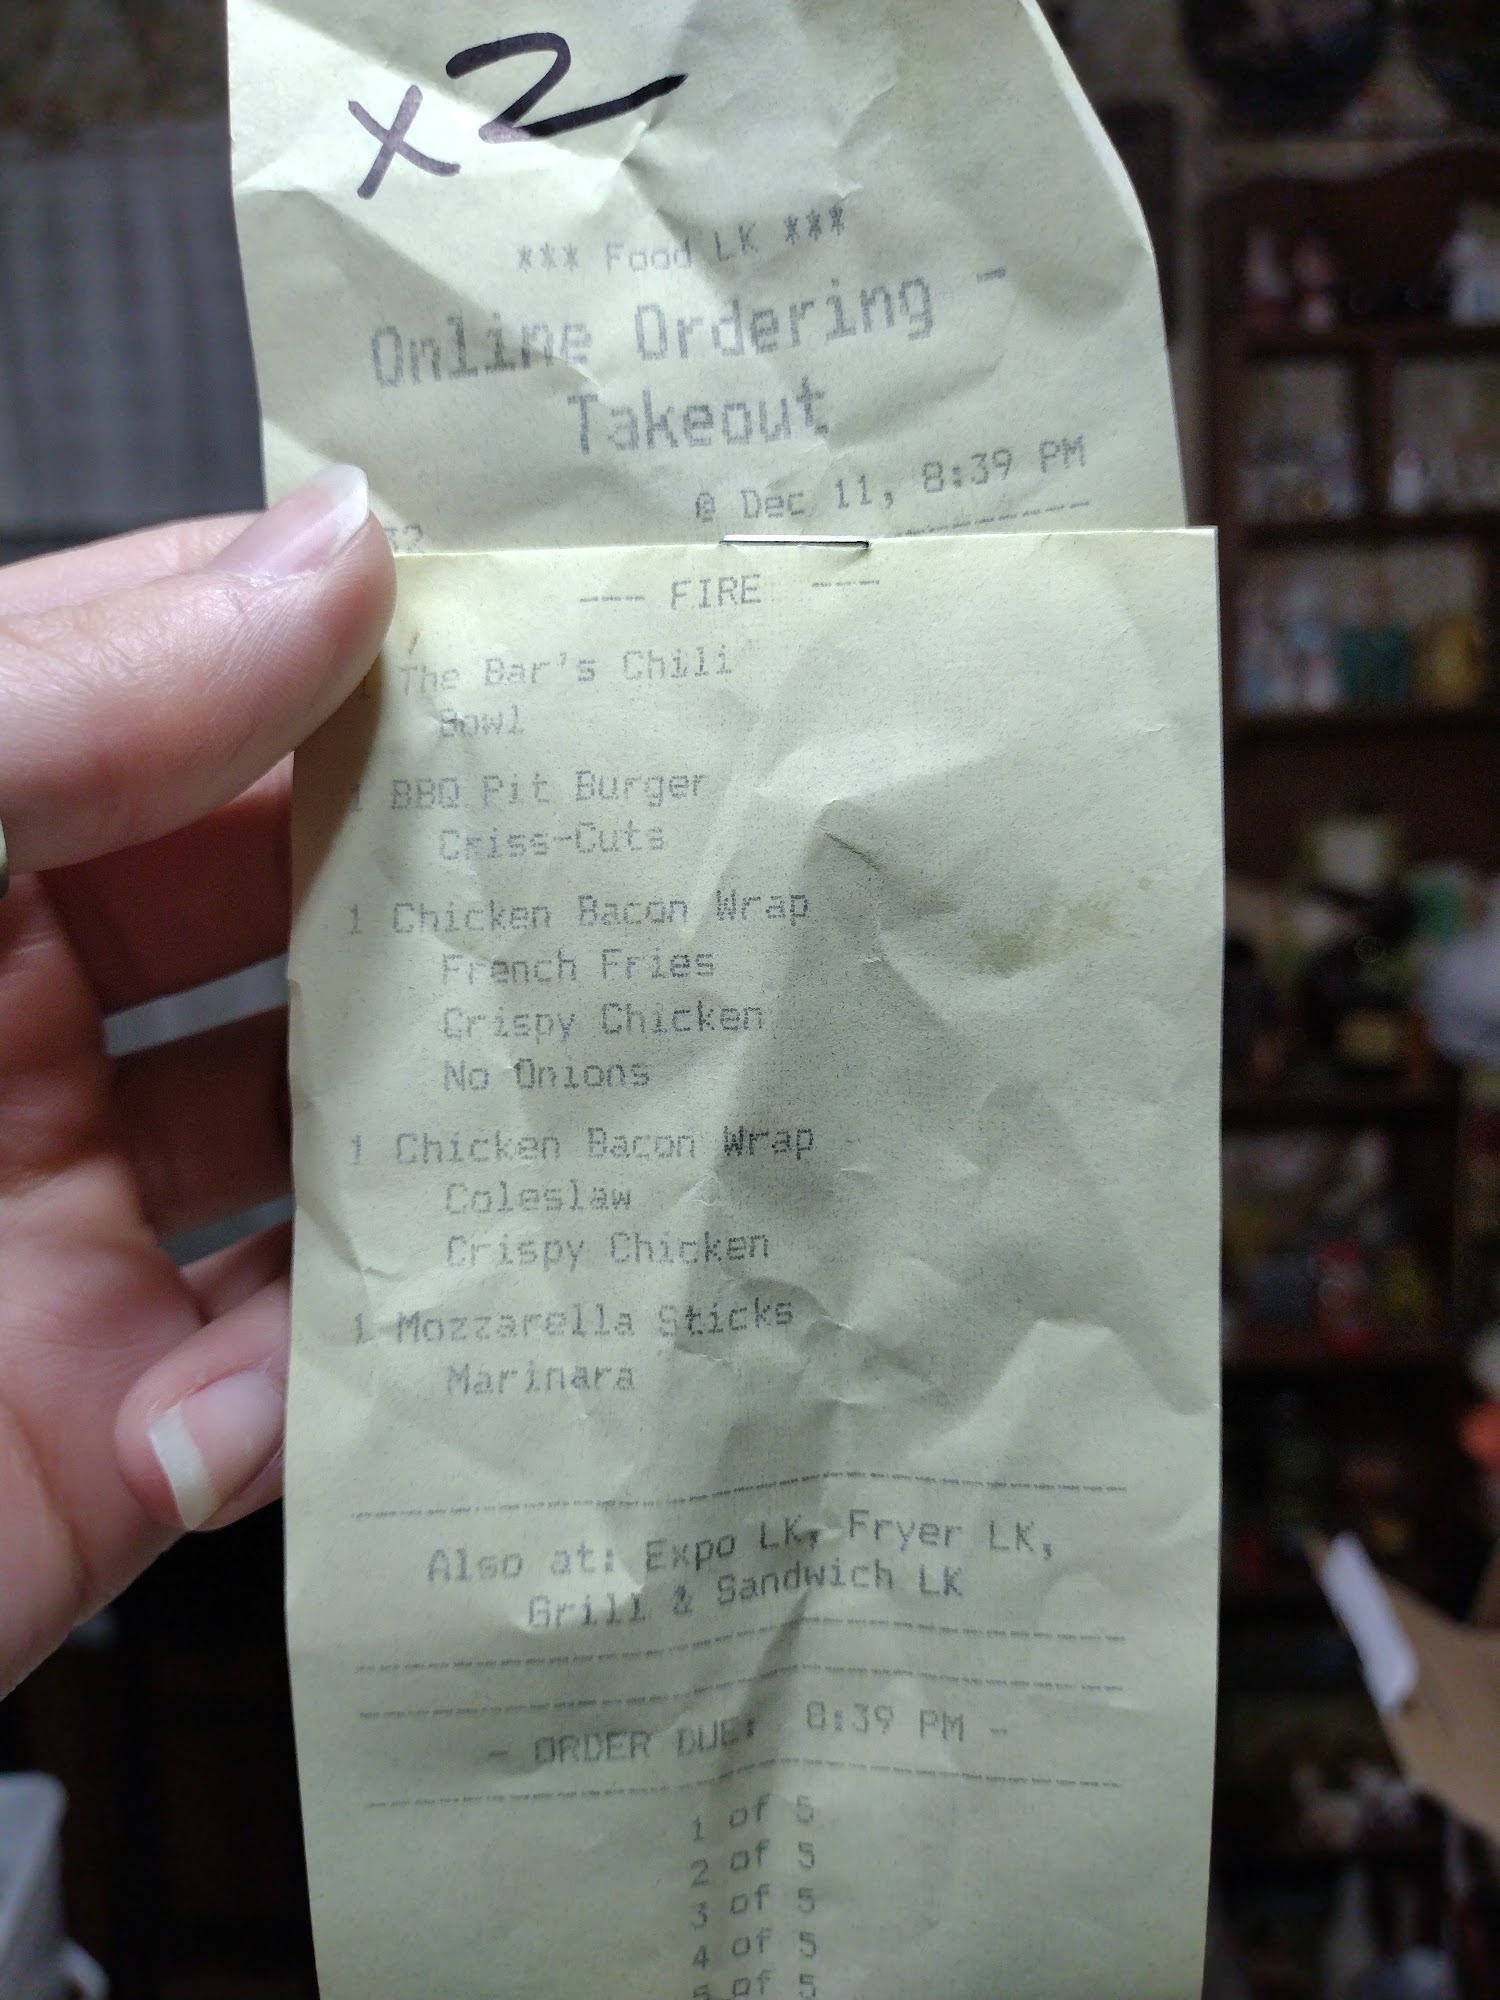 x2
*** Food LK ***
Online Ordering -
Takeout
@ Dec 11, 8:39 PM
32
--- FIRE ---
1 The Bar's Chili
Bowl
1 BBQ Pit Burger
Criss-Cuts
1 Chicken Bacon Wrap
French Fries
Crispy Chicken
No Onions
1 Chicken Bacon Wrap
Coleslaw
Crispy Chicken
1 Mozzarella Sticks
Marinara
Also at: Expo LK, Fryer LK,
Grill & Sandwich LK
- ORDER DUE: 8:39 PM -
1 of 5
2 of 5
3 of 5
4 of 5
5 of 5